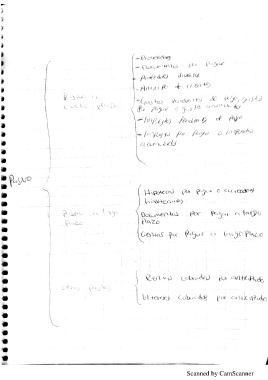 - Proveedores
- Documentos por Pagar
- Acreedores diversos
- Anticipo de clientes
- Gastos Pendientes de Pago, gastos
por Pagar o gastos acumulados
- Impuestos Pendientes de Pago
- Impuestos por Pagar o impuestos
acumulados
Pasivo a
corto plazo
Pasivo
Hipotecas por Pagar o acreedores
hipotecarios
Documentos por Pagar a largo
Plazo
Cuentas por Pagar a largo Plazo
Pasivo a largo
Plazo
Rentas cobradas por anticipado
Intereses cobrados por anticipado
Otros pasivos
Scanned by CamScanner